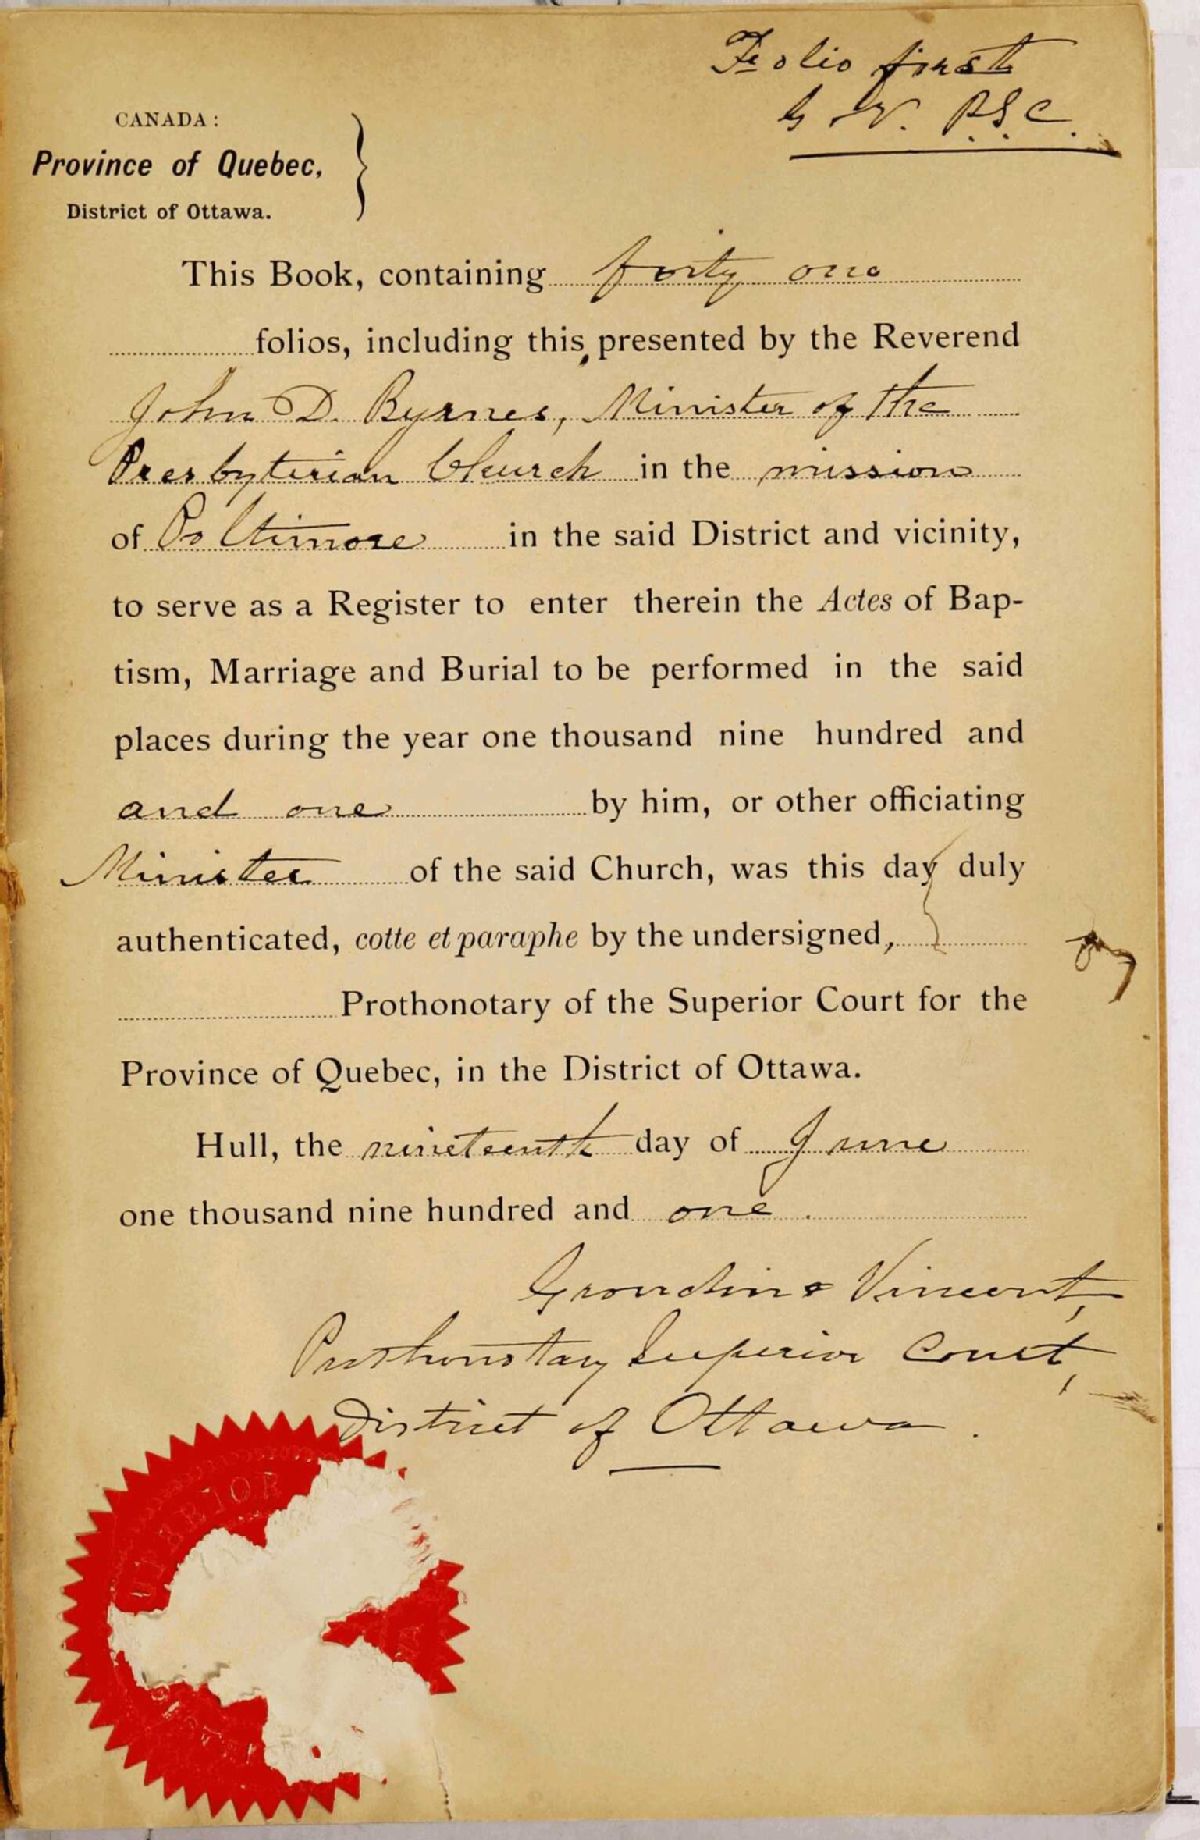 Folio first
G & V. P.S.C.
CANADA:
Province of Quebec,
District of Ottawa.
This Book, containing forty one
folios, including this, presented by the Reverend
John D. Byrnes, Minister of the
Presbyterian Church in the mission
of Poltimore in the said District and vicinity,
to serve as a Register to enter therein the Actes of Bap-
tism, Marriage and Burial to be performed in the said
places during the year one thousand nine hundred and
and one by him, or other officiating
Minister of the said Church, was this day duly
authenticated, cotte et paraphe by the undersigned,
Prothonotary of the Superior Court for the
Province of Quebec, in the District of Ottawa.
Hull, the nineteenth day of June
one thousand nine hundred and one.
Grondin & Vincent,
Prothonotary Superior Court,
District of Ottawa.